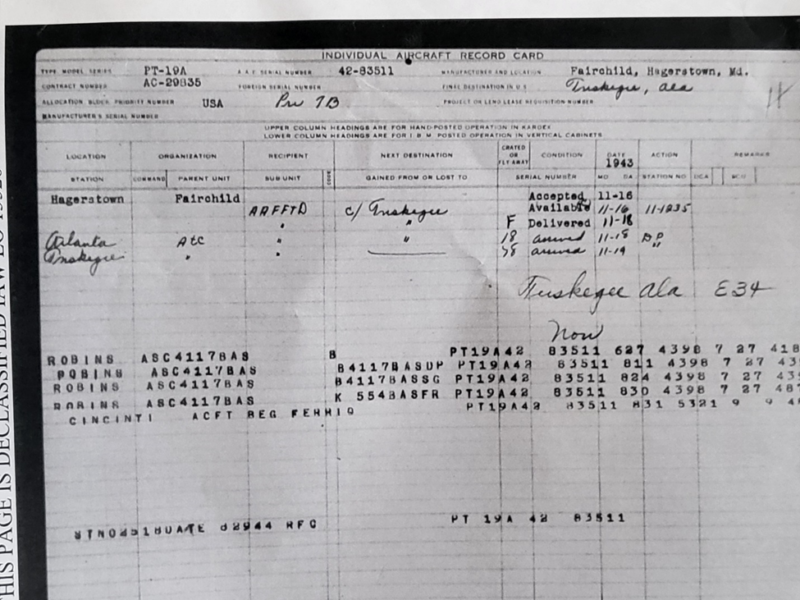 INDIVIDUAL AIRCRAFT RECORD CARD
TYPE MODEL SERIES PT-19A A.A.F. SERIAL NUMBER 42-83511 MANUFACTURER AND LOCATION Fairchild, Hagerstown, Md.
CONTRACT NUMBER AC-29835 FOREIGN SERIAL NUMBER FINAL DESTINATION IN U.S. Tuskegee, Ala
ALLOCATION BLOCK PRIORITY NUMBER USA PROJECT OR LEND LEASE REQUISITION NUMBER
MANUFACTURER'S SERIAL NUMBER
UPPER COLUMN HEADINGS ARE FOR HAND POSTED OPERATION IN KARDEX
LOWER COLUMN HEADINGS ARE FOR I.B.M. POSTED OPERATION IN VERTICAL CABINETS
LOCATION ORGANIZATION RECIPIENT NEXT DESTINATION CRATED OR FLY AWAY CONDITION DATE 1943 ACTION REMARKS
STATION COMMAND PARENT UNIT SUB UNIT GAINED FROM OR LOST TO SERIAL NUMBER MO DA STATION NO
Hagerstown Fairchild Accepted 11-16
AAFFTD c/ Tuskegee Available 11-16 11-1235
" " F Delivered 11-18
Atlanta ATC " " 18 arrived 11-18
Tuskegee " " arrived 11-19
Tuskegee Ala E34
Now
ROBINS ASC41178AS B PT19A42 83511 627 4398 7 27
ROBINS ASC41178AS B41178ASDP PT19A42 83511 811 4398 7 27
ROBINS ASC41178AS B41178ASSG PT19A42 83511 824 4398 7 27
ROBINS ASC41178AS K 5548ASFR PT19A42 83511 830 4398 7 27
CINCINTI ACFT REG FEHMIO PT19A42 83511 831 5321 9 9
82944 RFC PT 19A 42 83511
THIS PAGE IS DECLASSIFIED IAW EO